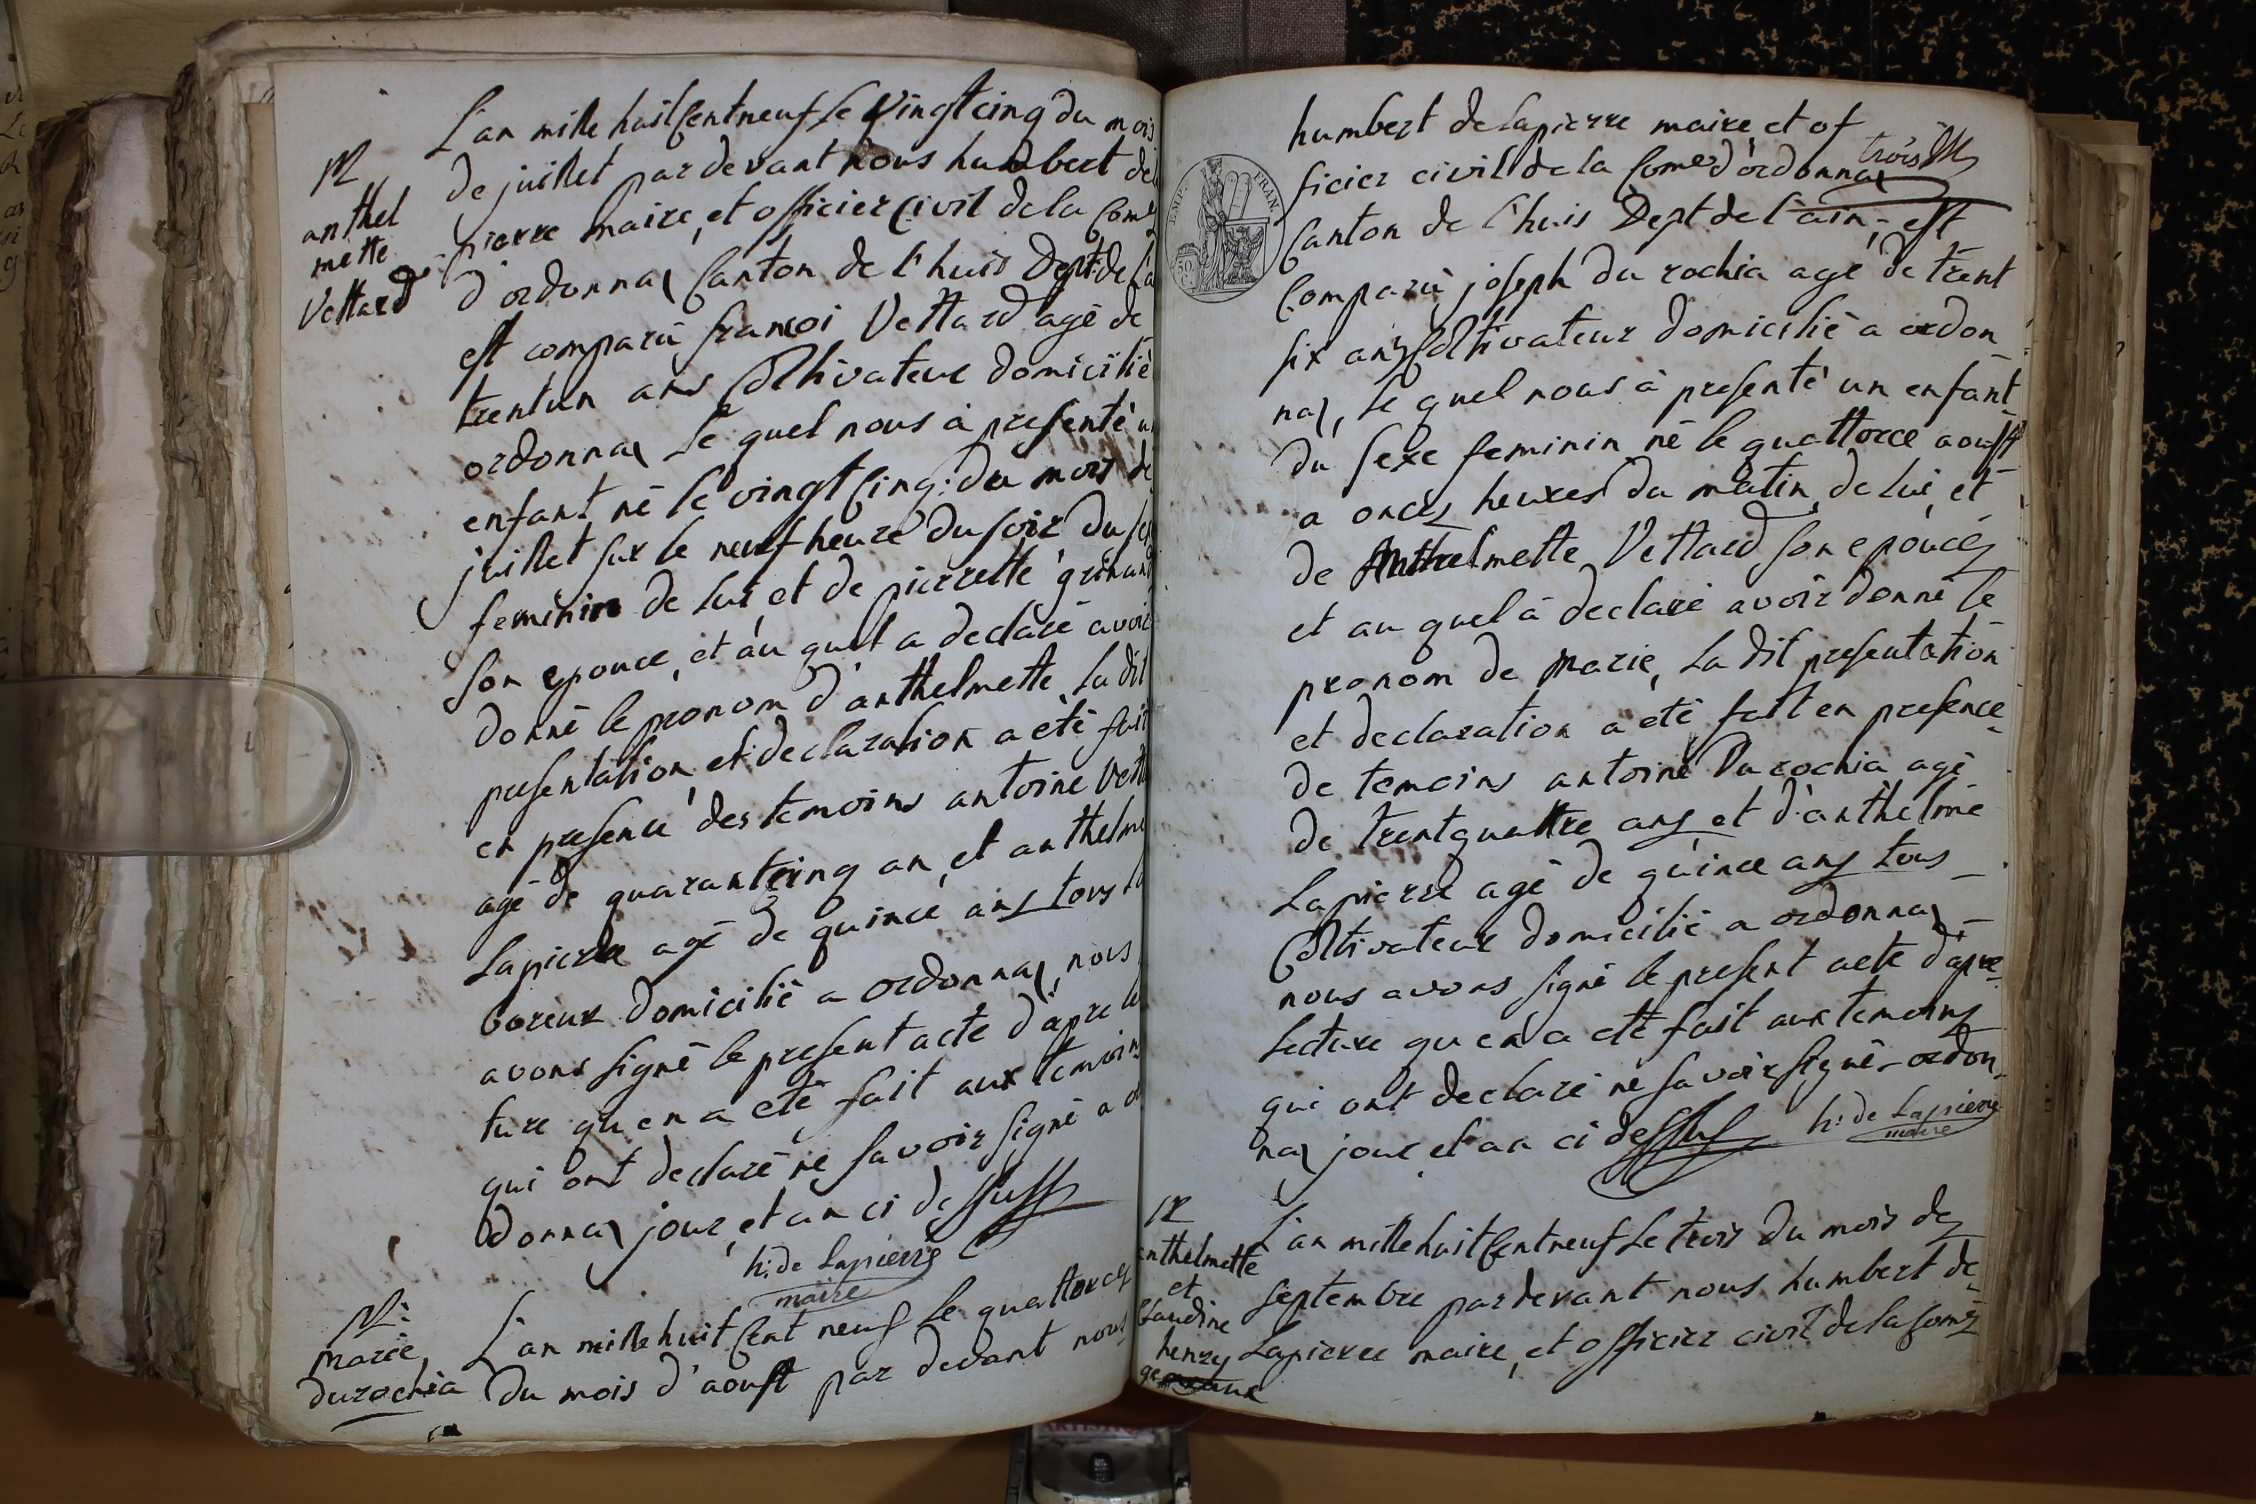 L'an mille huit Cent neuf Le Vingt cinq du mois
N
anthel
mette
Vettard
de juillet par devant nous humbert de
pierre maire, et officier Civil de la Com
d'ordonnax Canton de l'huis Dept: de
est comparu francoi Vettard agé de
trentun ans Coltivateur domicilié
ordonnax le quel nous à presenté
enfant né le vingt Cinq: du mois de
juillet sur le neuf heure du soir du
feminin de lui et de pierrette
son epouce, et au quel a declaré avoir
donné le pronom d'anthelmette, la dit
presentation, et declaration a été fait
en presence des temoins antoine
agé de quarantcinq an, et anthelme
Lapierre agé de quince ans tous
boreur domicilié a ordonnax, nous
avons signé le present acte d'apre
ture qu en a eté fait aux temoins
qui ont declaré ne savoir signé a
donnax jour, et an ci dessuss
h: de Lapierre
maire
N:
marie
durochia
L'an mille huit Cent neuf le quattorce
du mois d'aoust par devant nous
humbert de Lapierre maire, et of
trois
ficier civil de la Come d'ordonnax
EMP. FRAN.
Canton de l'huis Dept de l'ain, est
Comparù joseph du rochia agé de trent
six ans Coltivateur domicilié a ordon
nax, le quel nous à presenté un enfant
du sexe feminin né le quattorce aoust
a onces heures du matin de lui, et
de Anthelmette Vettard son epouce
et au quel à declaré avoir donné le
pronom de marie, La dit presentation
et declaration a eté fait en presence
de temoins antoine Durochia agé
de trentquattre ans et d'anthelme
Lapierre agé de quince ans tous
Coltivateur domicilié a ordonnax
nous avons signé le present acte d'apre
lecture qu en a eté fait aux temoins
qui ont declaré ne savoir signé - ordon
nax jour et an ci dessus
h: de Lapierre
maire
N
anthelmette
et
Claudine
henry
L'an mille huit Cent neuf Le trois du mois de
septembre par devant nous humbert de
Lapierre maire, et officier civil de la Come